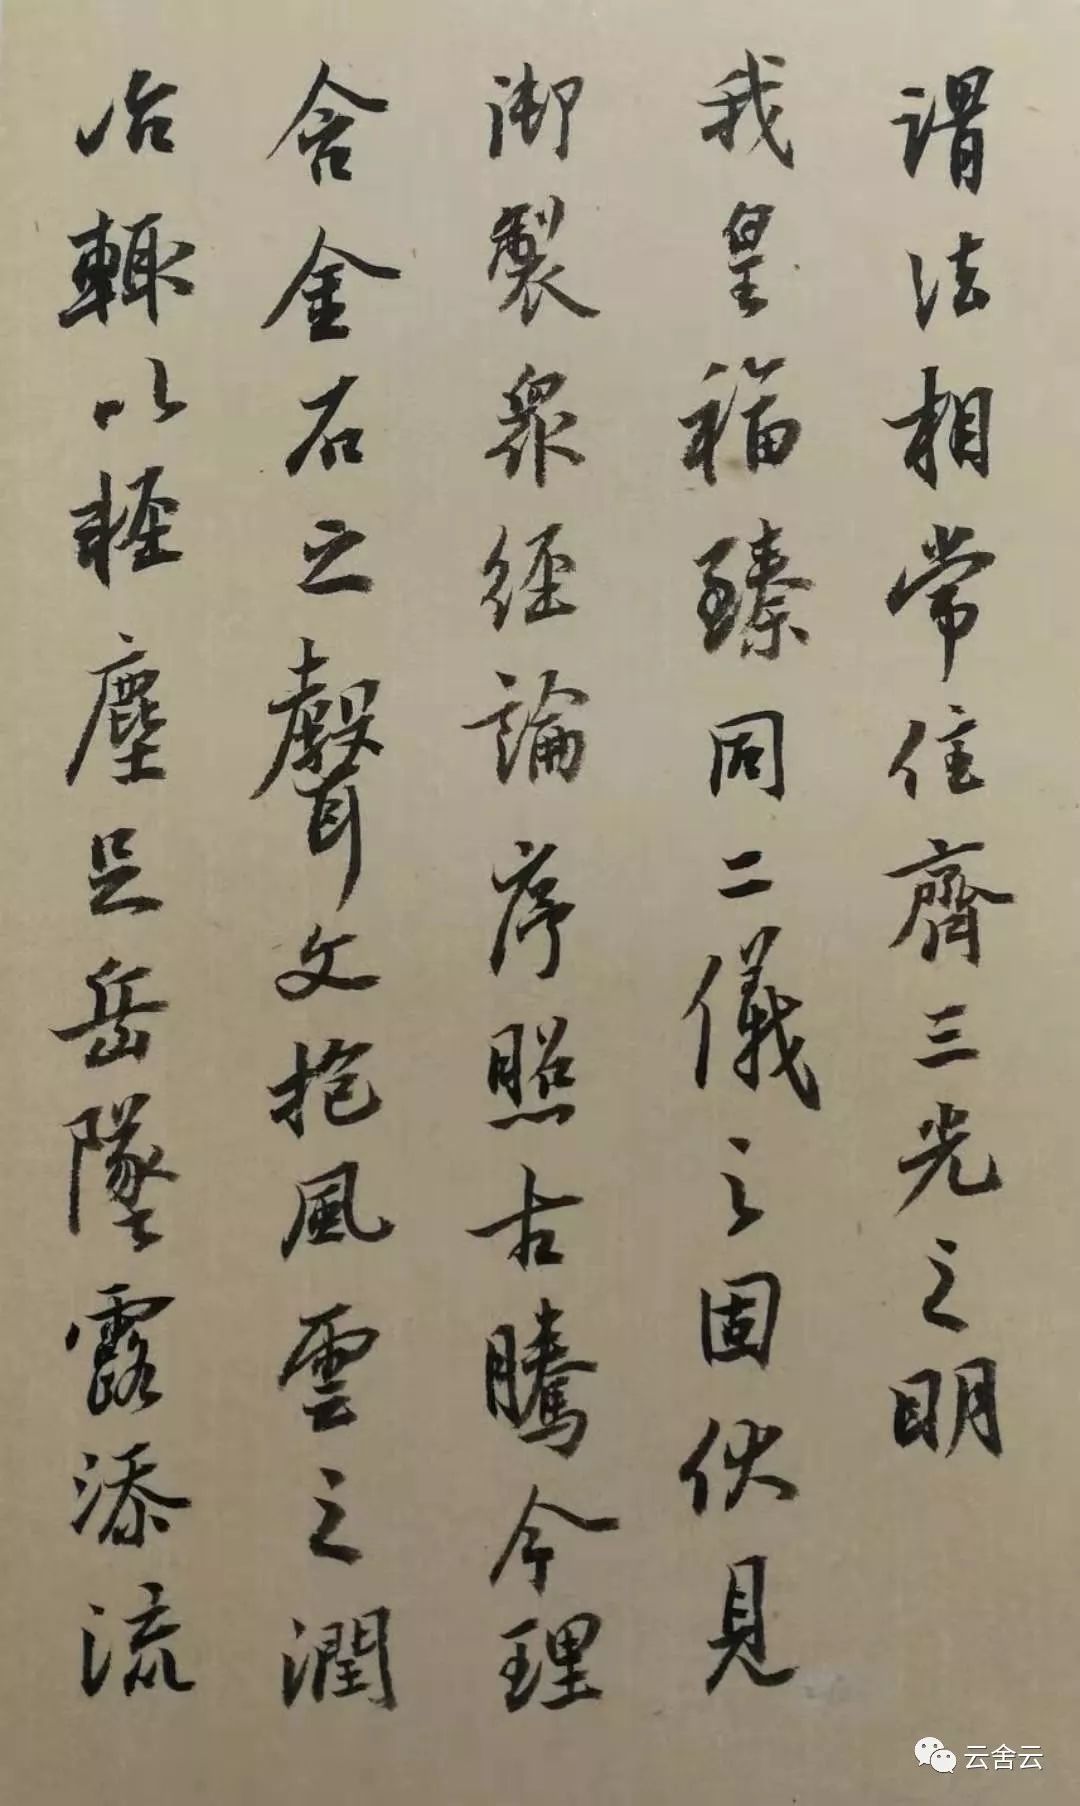 謂法相常住齊三光之明
我皇福臻同二儀之固伏見
御製衆經論序照古騰今理
含金石之聲文抱風雲之潤
治輒以輕塵足岳墜露添流
云舍云